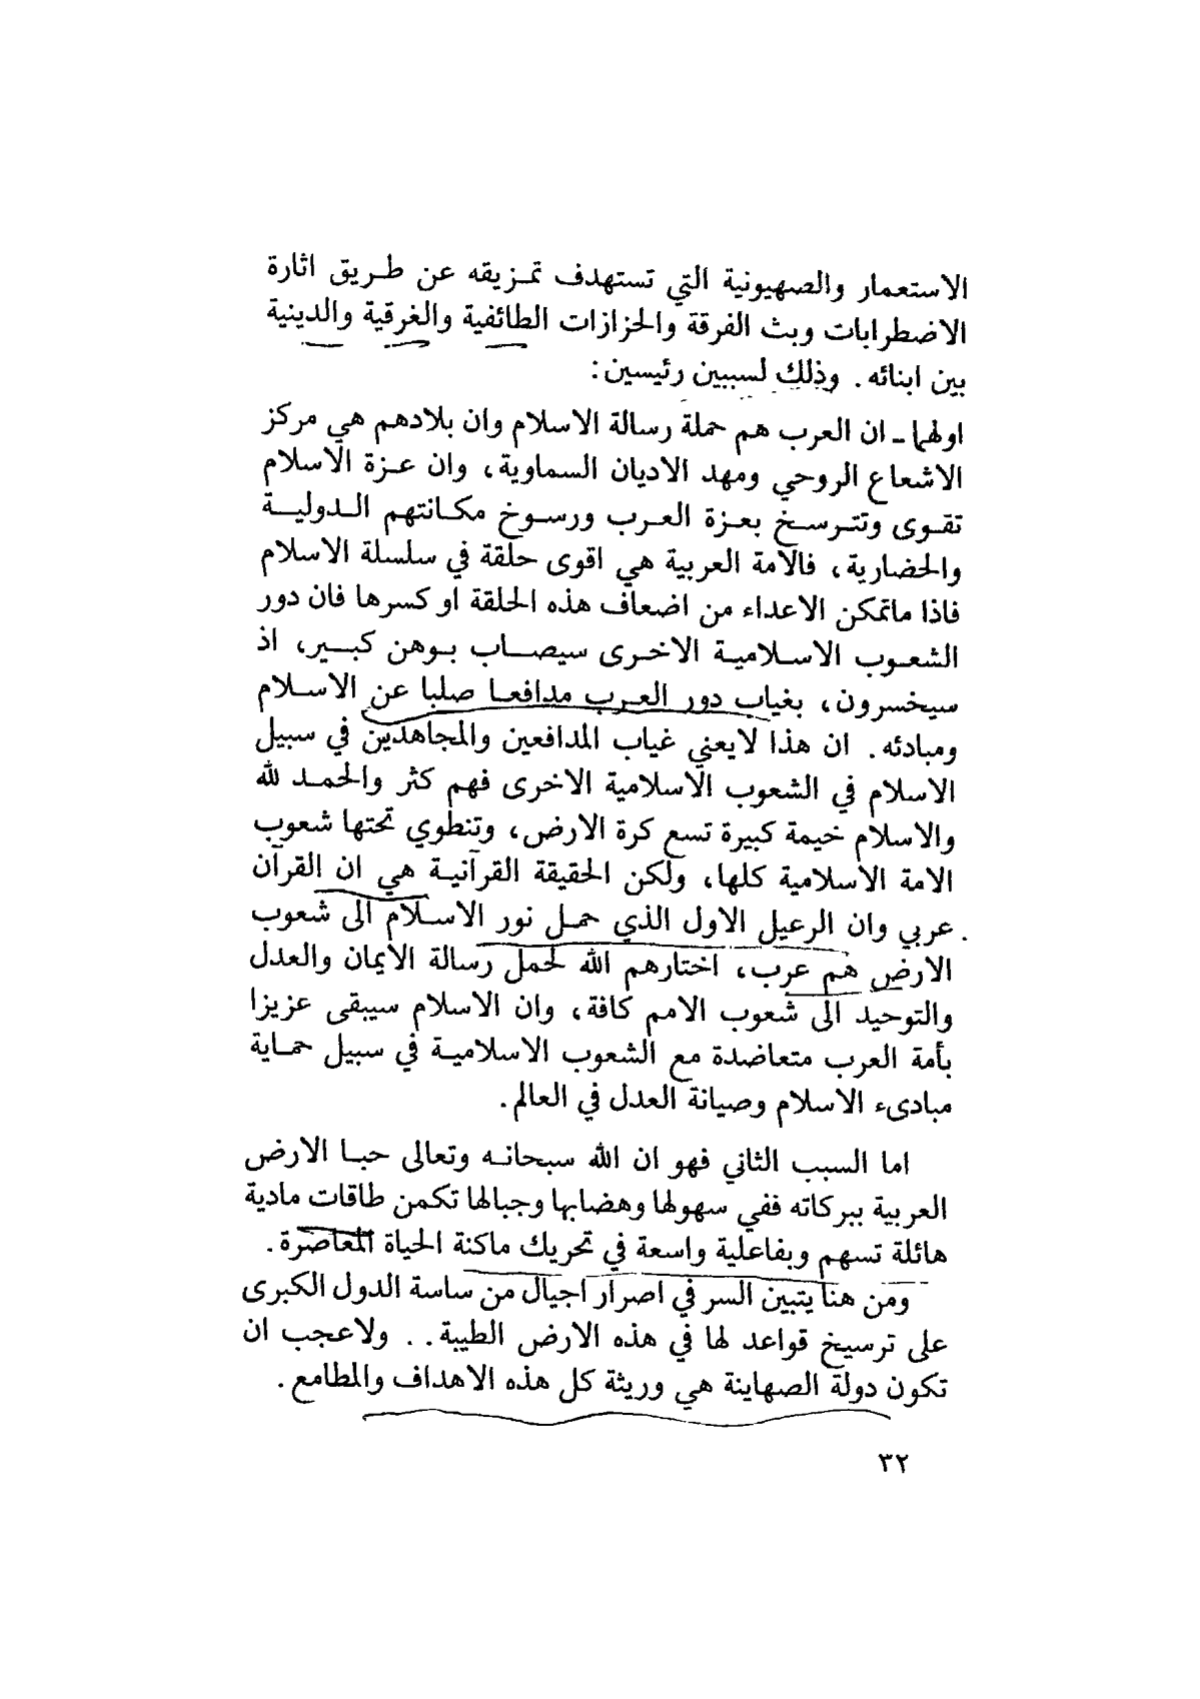 الاستعمار والصهيونية التي تستهدف تمـزيقه عن طـريق اثارة
الاضطرابات وبث الفرقة والحزازات الطائفية والغرقية والدينية
بين ابنائه. وذلك لسببين رئيسين:
اولهما ـ ان العرب هم حملة رسالة الاسلام وان بلادهم هي مركز
الاشعاع الروحي ومهد الاديان السماوية، وان عـزة الاسلام
تقـوى وتتـرسـخ بعـزة العـرب ورسـوخ مكـانتهم الـدوليـة
والحضارية، فالامة العربية هي اقوى حلقة في سلسلة الاسلام
فاذا ماتمكن الاعداء من اضعاف هذه الحلقة او كسرها فان دور
الشعـوب الاسـلاميـة الاخـرى سيصـاب بـوهن كبـير، اذ
سيخسرون، بغياب دور العـرب مدافعـا صلبا عن الاسـلام
ومبادئه. ان هذا لايعني غياب المدافعين والمجاهدين في سبيل
الاسلام في الشعوب الاسلامية الاخرى فهم كثر والحمـد لله
والاسلام خيمة كبيرة تسع كرة الارض، وتنطوي تحتها شعوب
الامة الاسلامية كلها، ولكن الحقيقة القرآنيـة هي ان القرآن
عربي وان الرعيل الاول الذي حمـل نور الاسـلام الى شعوب
الارض هم عرب، اختارهم الله لحمل رسالة الايمان والعدل
والتوحيد الى شعوب الامم كافة، وان الاسلام سيبقى عزيزا
بأمة العرب متعاضدة مع الشعوب الاسلاميـة في سبيل حمـاية
مبادىء الاسلام وصيانة العدل في العالم.
اما السبب الثاني فهو ان الله سبحانـه وتعالى حبـا الارض
العربية ببركاته ففي سهولها وهضابها وجبالها تكمن طاقات مادية
هائلة تسهم وبفاعلية واسعة في تحريك ماكنة الحياة المعاصرة.
ومن هنا يتبين السر في اصرار اجيال من ساسة الدول الكبرى
على ترسيخ قواعد لها في هذه الارض الطيبة.. ولاعجب ان
تكون دولة الصهاينة هي وريثة كل هذه الاهداف والمطامع.
٣٢